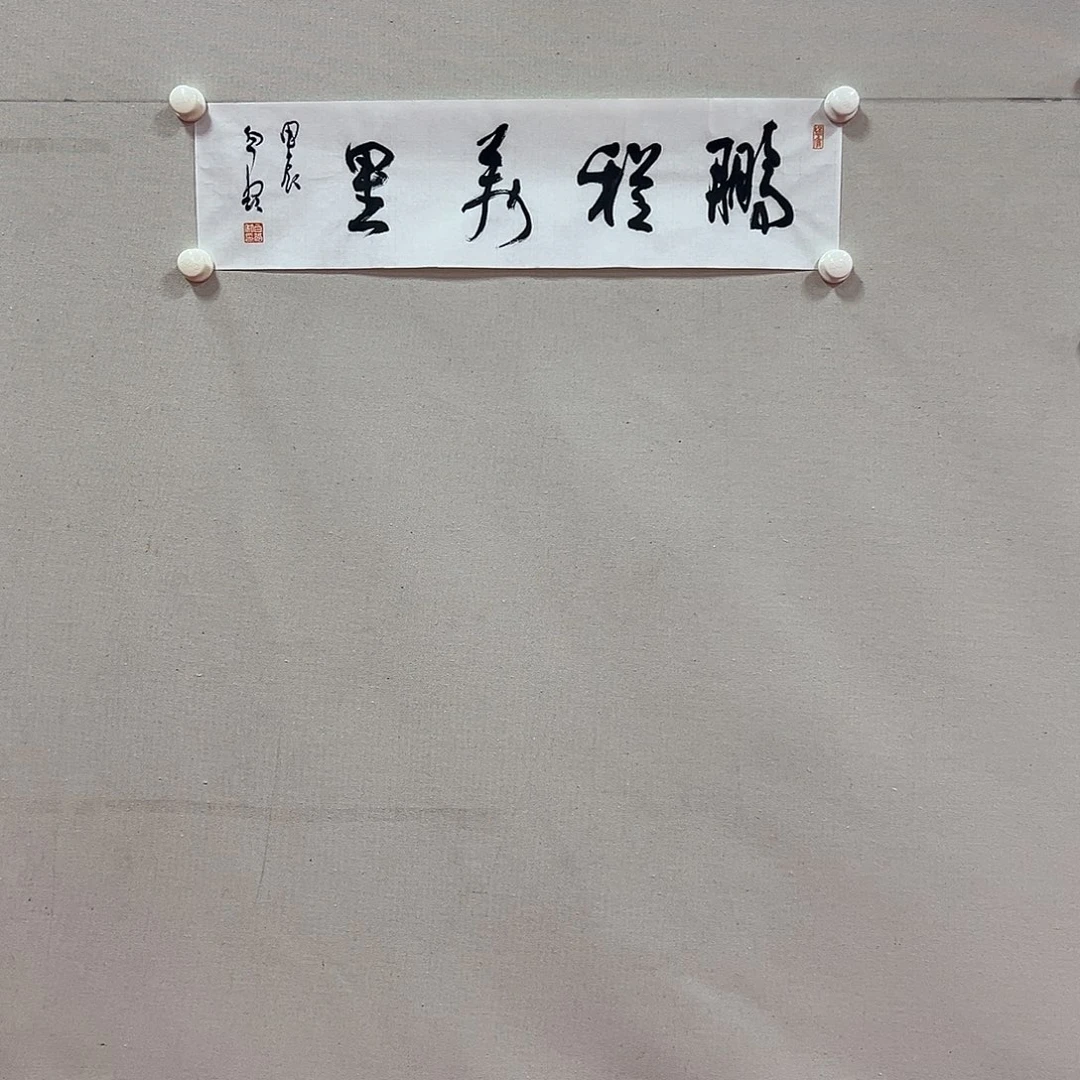 鵬程萬里
甲辰